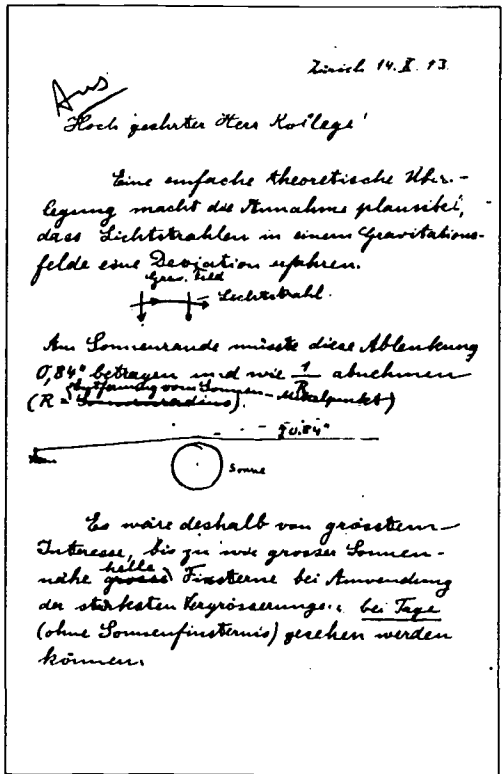 Zürich 14. X. 13.
Aus
Hoch geehrter Herr Kollege!
Eine einfache theoretische Über-
legung macht die Annahme plausibel,
dass Lichtstrahlen in einem Gravitations-
felde eine Deviation erfahren.
Grav. Feld
Lichtstrahl
Am Sonnenrande müsste diese Ablenkung
0,84" betragen und wie 1/R abnehmen
(R = Sonnenradius) Entfernung vom Sonnen-Mittelpunkt)
0.84"
Sonne
Es wäre deshalb von grösstem
Interesse, bis zu wie grosser Sonnen-
nähe grosse helle Fixsterne bei Anwendung
der stärksten Vergrösserungen bei Tage
(ohne Sonnenfinsternis) gesehen werden
können.